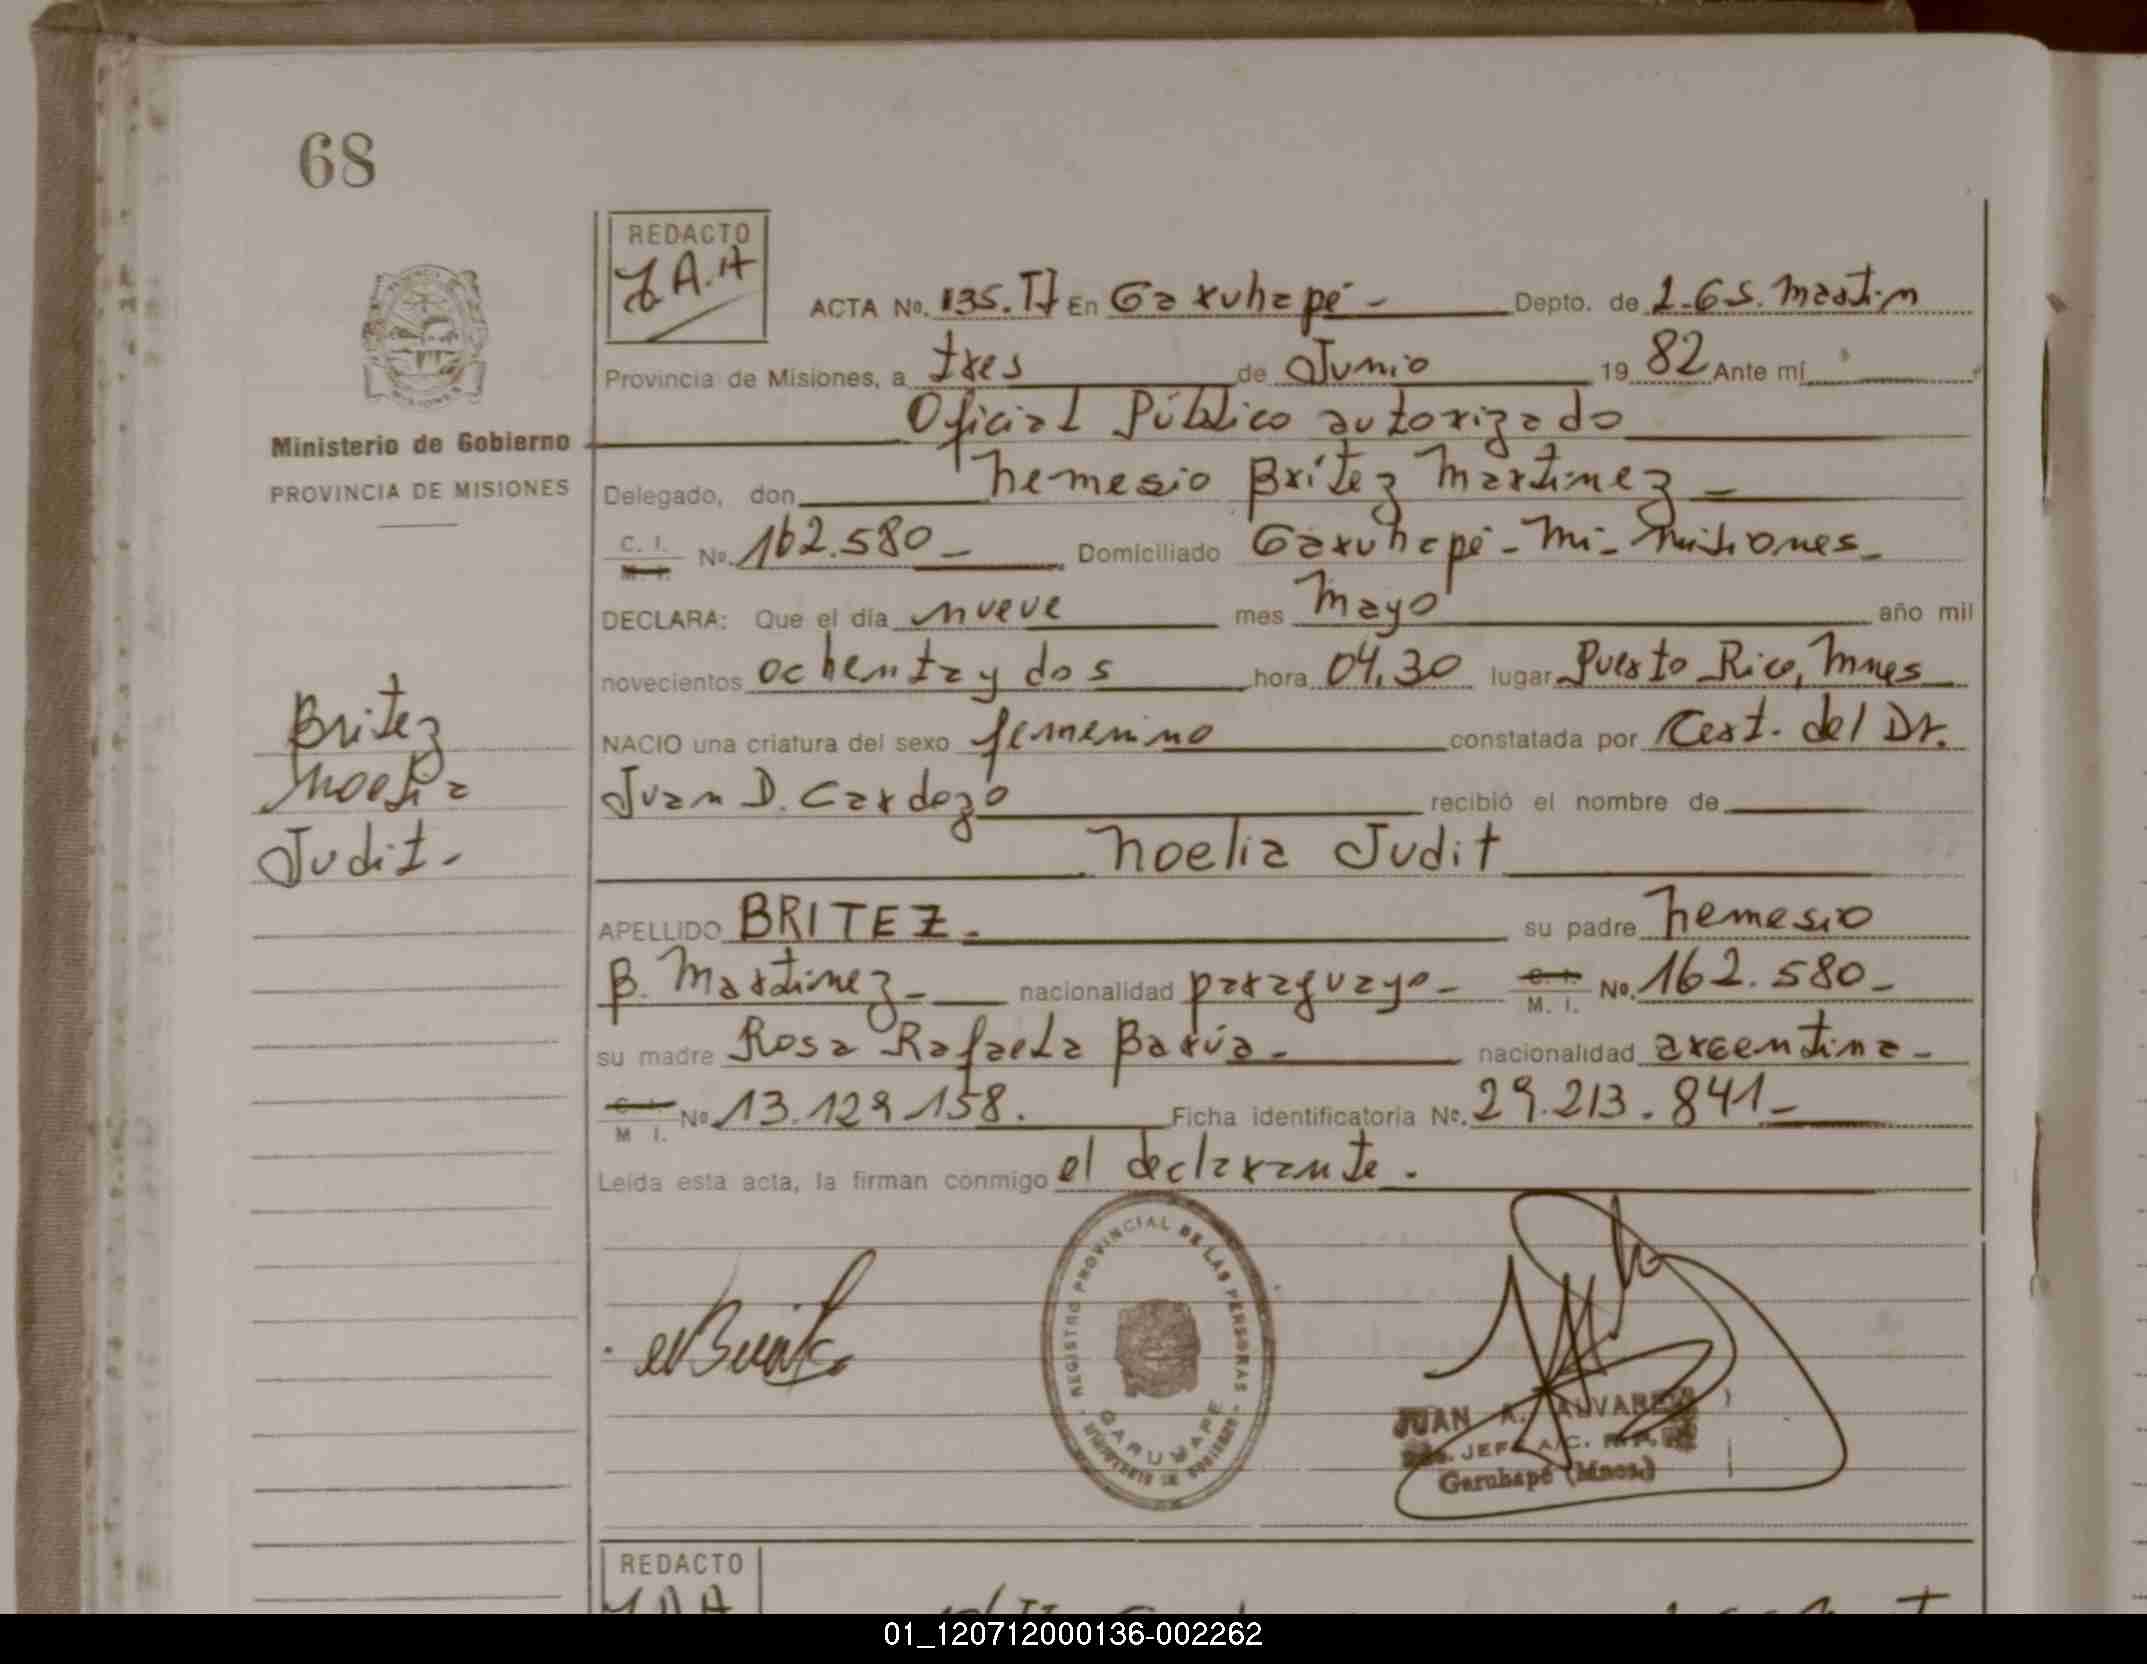 68
REDACTO
J.A.A
ACTA No. 135.TI En Garuhapé - Depto. de L.G.S. Martin
Provincia de Misiones, a tres de Junio 19 82 Ante mí
Oficial Público autorizado
Ministerio de Gobierno
PROVINCIA DE MISIONES
Delegado, don Nemesio Brítez Martinez -
C. I. M. I. No. 162.580 - Domiciliado Garuhapé - Mi - Misiones -
DECLARA: Que el día nueve mes Mayo año mil
novecientos ochenta y dos hora 04,30 lugar Puerto Rico, Mnes
NACIO una criatura del sexo femenino constatada por Cert. del Dr.
Juan D. Cardozo recibió el nombre de
Noelia Judit
Britez
Noelia
Judit -
APELLIDO BRITEZ - su padre Nemesio
B. Martinez - nacionalidad paraguayo - C. I. M. I. No. 162.580 -
su madre Rosa Rafaela Barúa - nacionalidad argentina -
C. I. M I. No 13.129.158. Ficha identificatoria No. 29.213.841 -
Leída esta acta, la firman conmigo el declarante.
REGISTRO PROVINCIAL DE LAS PERSONAS
GARUHAPE
MINISTERIO DE GOBIERNO
JUAN A. ALVAREZ
JEFE A/C.
Garuhapé (Mnes.)
REDACTO
01_120712000136-002262